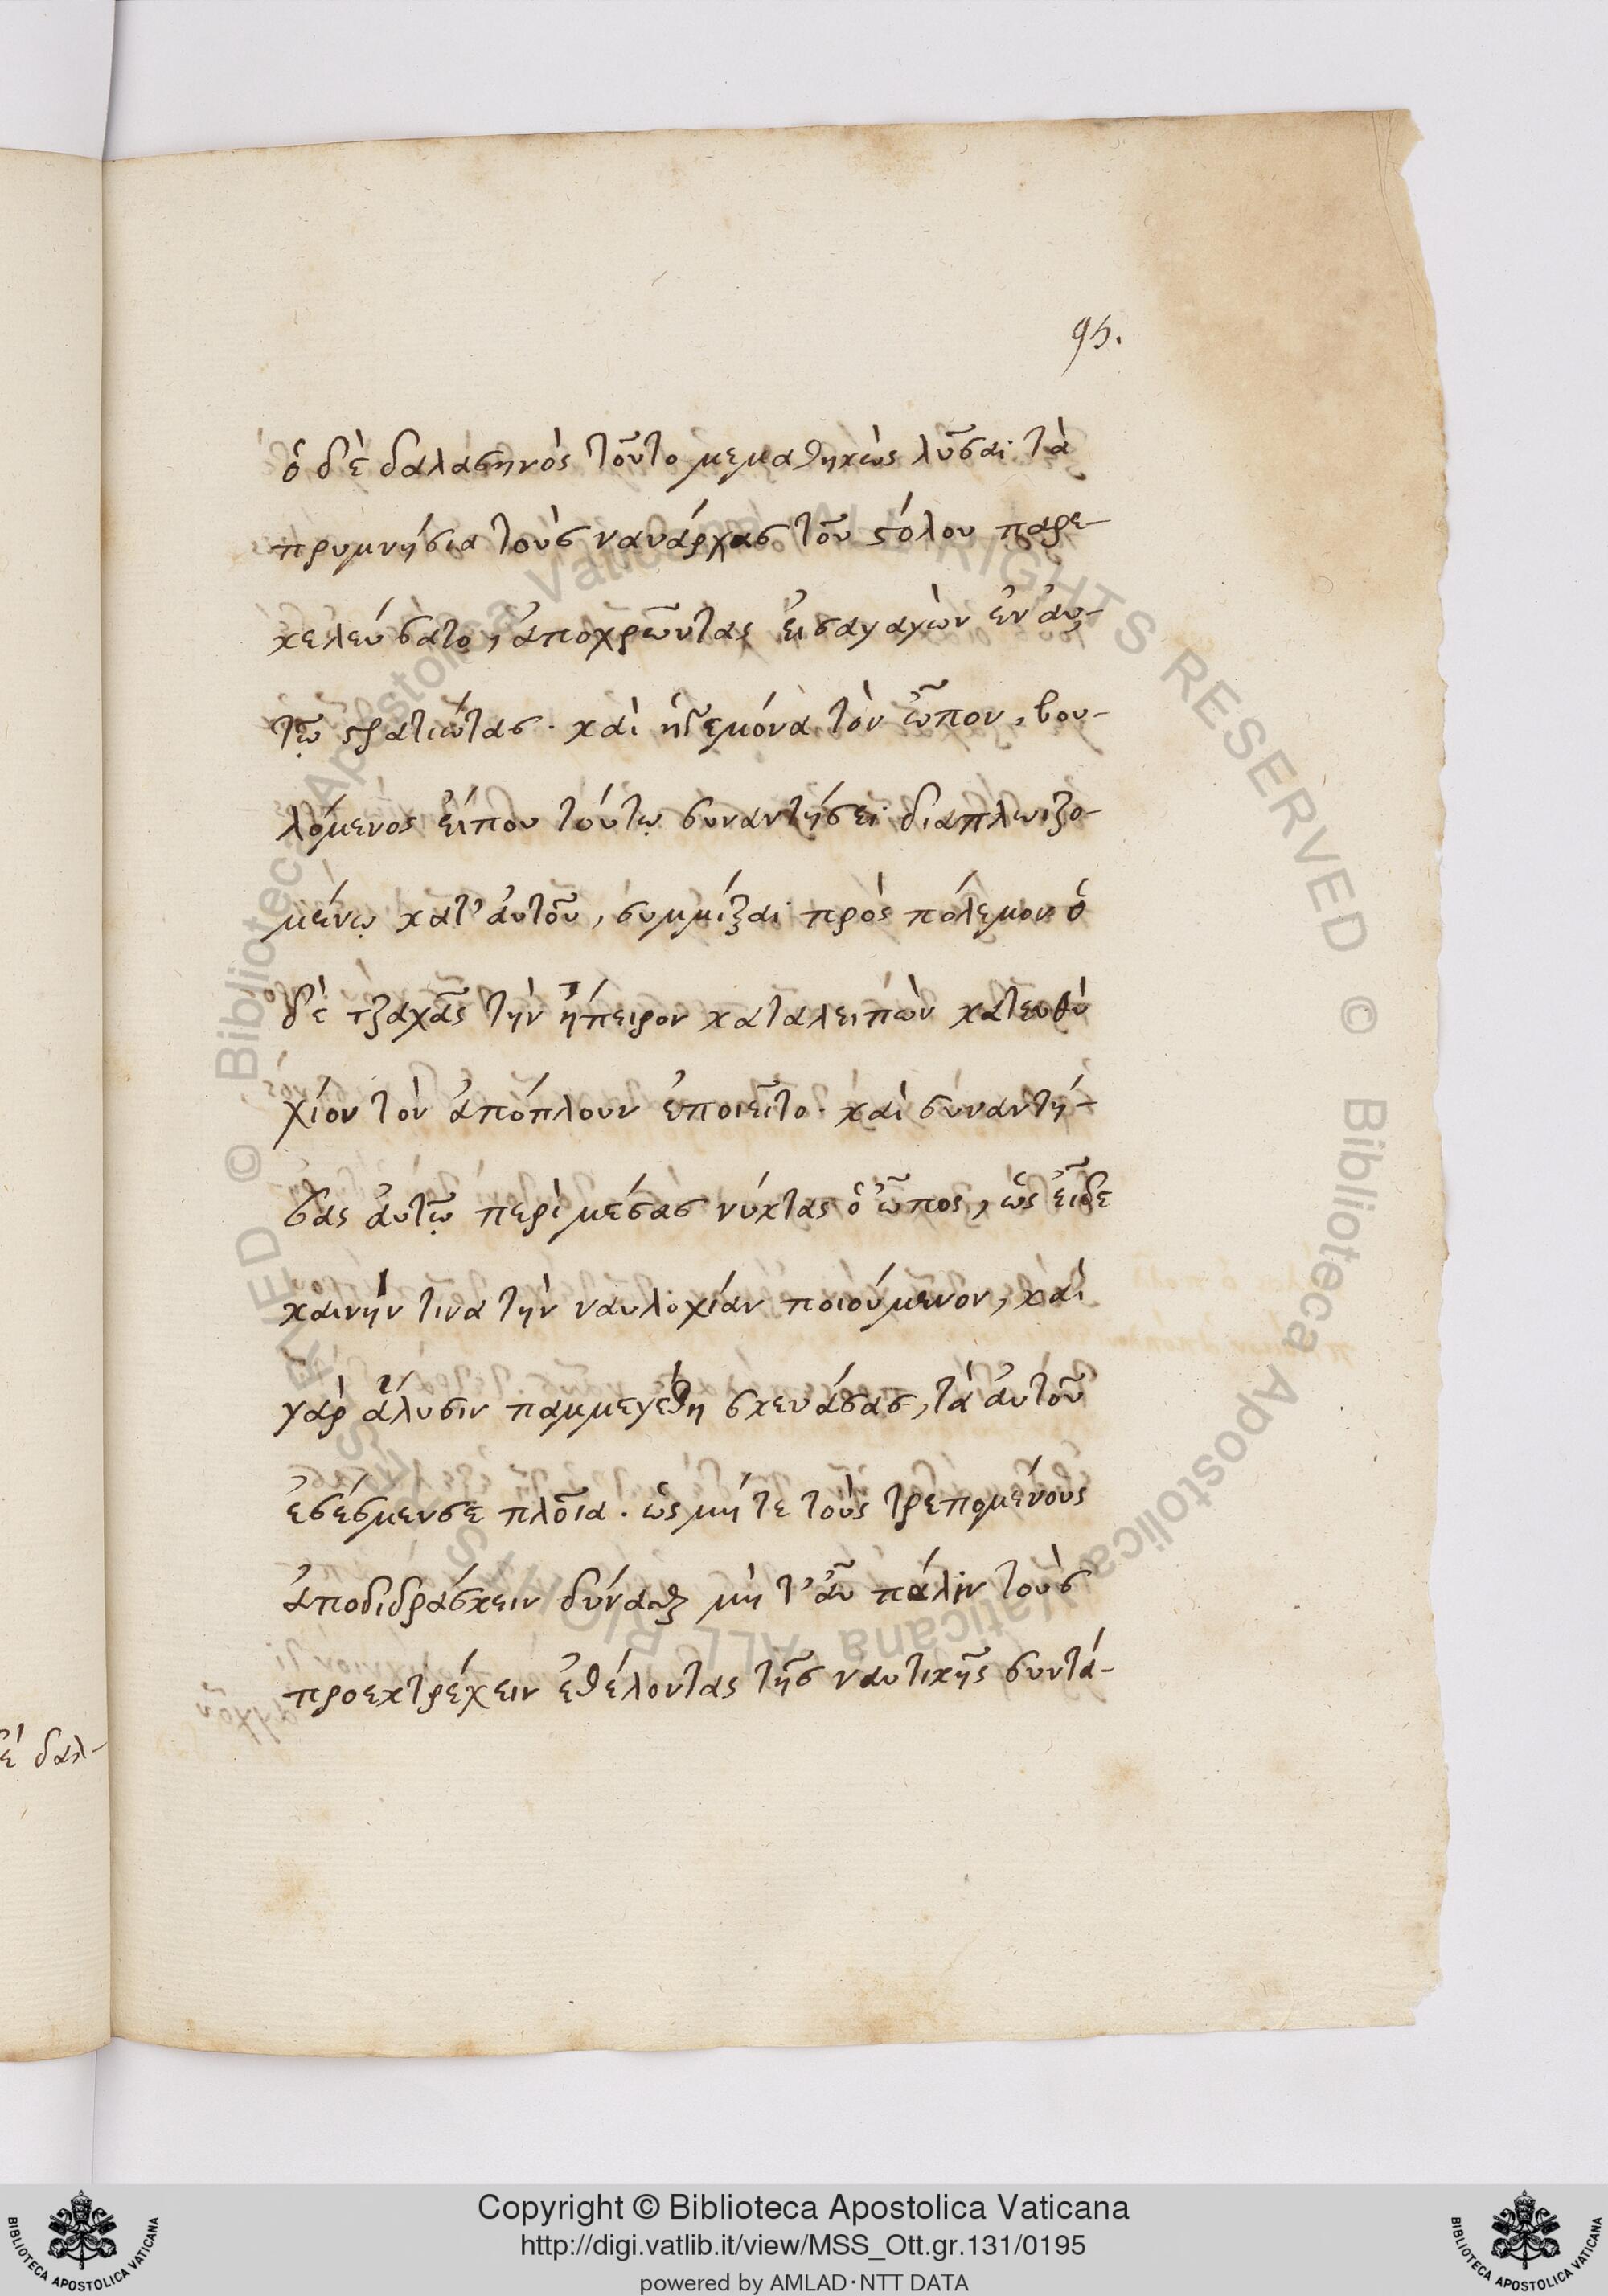 95.
ὁ δὲ δαλασηνὸς τοῦτο μεμαθηκὼς λῦσαι τὰ
πρυμνήσια τοὺς ναυάρχας τοῦ στόλου παρε-
κελεύσατο, ἀποχρῶντας εἰσαγαγὼν ἐν αὐ-
τῷ στρατιώτας. καὶ ἡγεμόνα τὸν ὦπον, βου-
λόμενος εἴπου τούτῳ συναντήσει διαπλωιζο-
μένῳ κατ' αὐτοῦ, συμμίξαι πρὸς πόλεμον. ὁ
δὲ τζαχᾶς τὴν ἤπειρον καταλειπὼν κατευθὺ
χίου τὸν ἀπόπλουν ἐποιεῖτο. καὶ συναντή-
σας αὐτῷ περὶ μέσας νύκτας ὁ ὦπος, ὡς εἶδε
καινήν τινα τὴν ναυλοχίαν ποιούμενον, καὶ
γὰρ ἅλυσιν παμμεγέθη σκευάσας, τὰ αὐτοῦ
ἐσέσμευσε πλοῖα. ὡς μήτε τοὺς τρεπομένους
ἀποδιδράσκειν δύνασθαι μήτ' αὖ πάλιν τοὺς
προεκτρέχειν ἐθέλοντας τῆς ναυτικῆς συντά-
δὲ δαλ-
© Biblioteca Apostolica Vaticana ALL RIGHTS RESERVED © Biblioteca Apostolica Vaticana ALL RIGHTS RESERVED
Copyright © Biblioteca Apostolica Vaticana
http://digi.vatlib.it/view/MSS_Ott.gr.131/0195
powered by AMLAD·NTT DATA
BIBLIOTECA APOSTOLICA VATICANA
BIBLIOTECA APOSTOLICA VATICANA